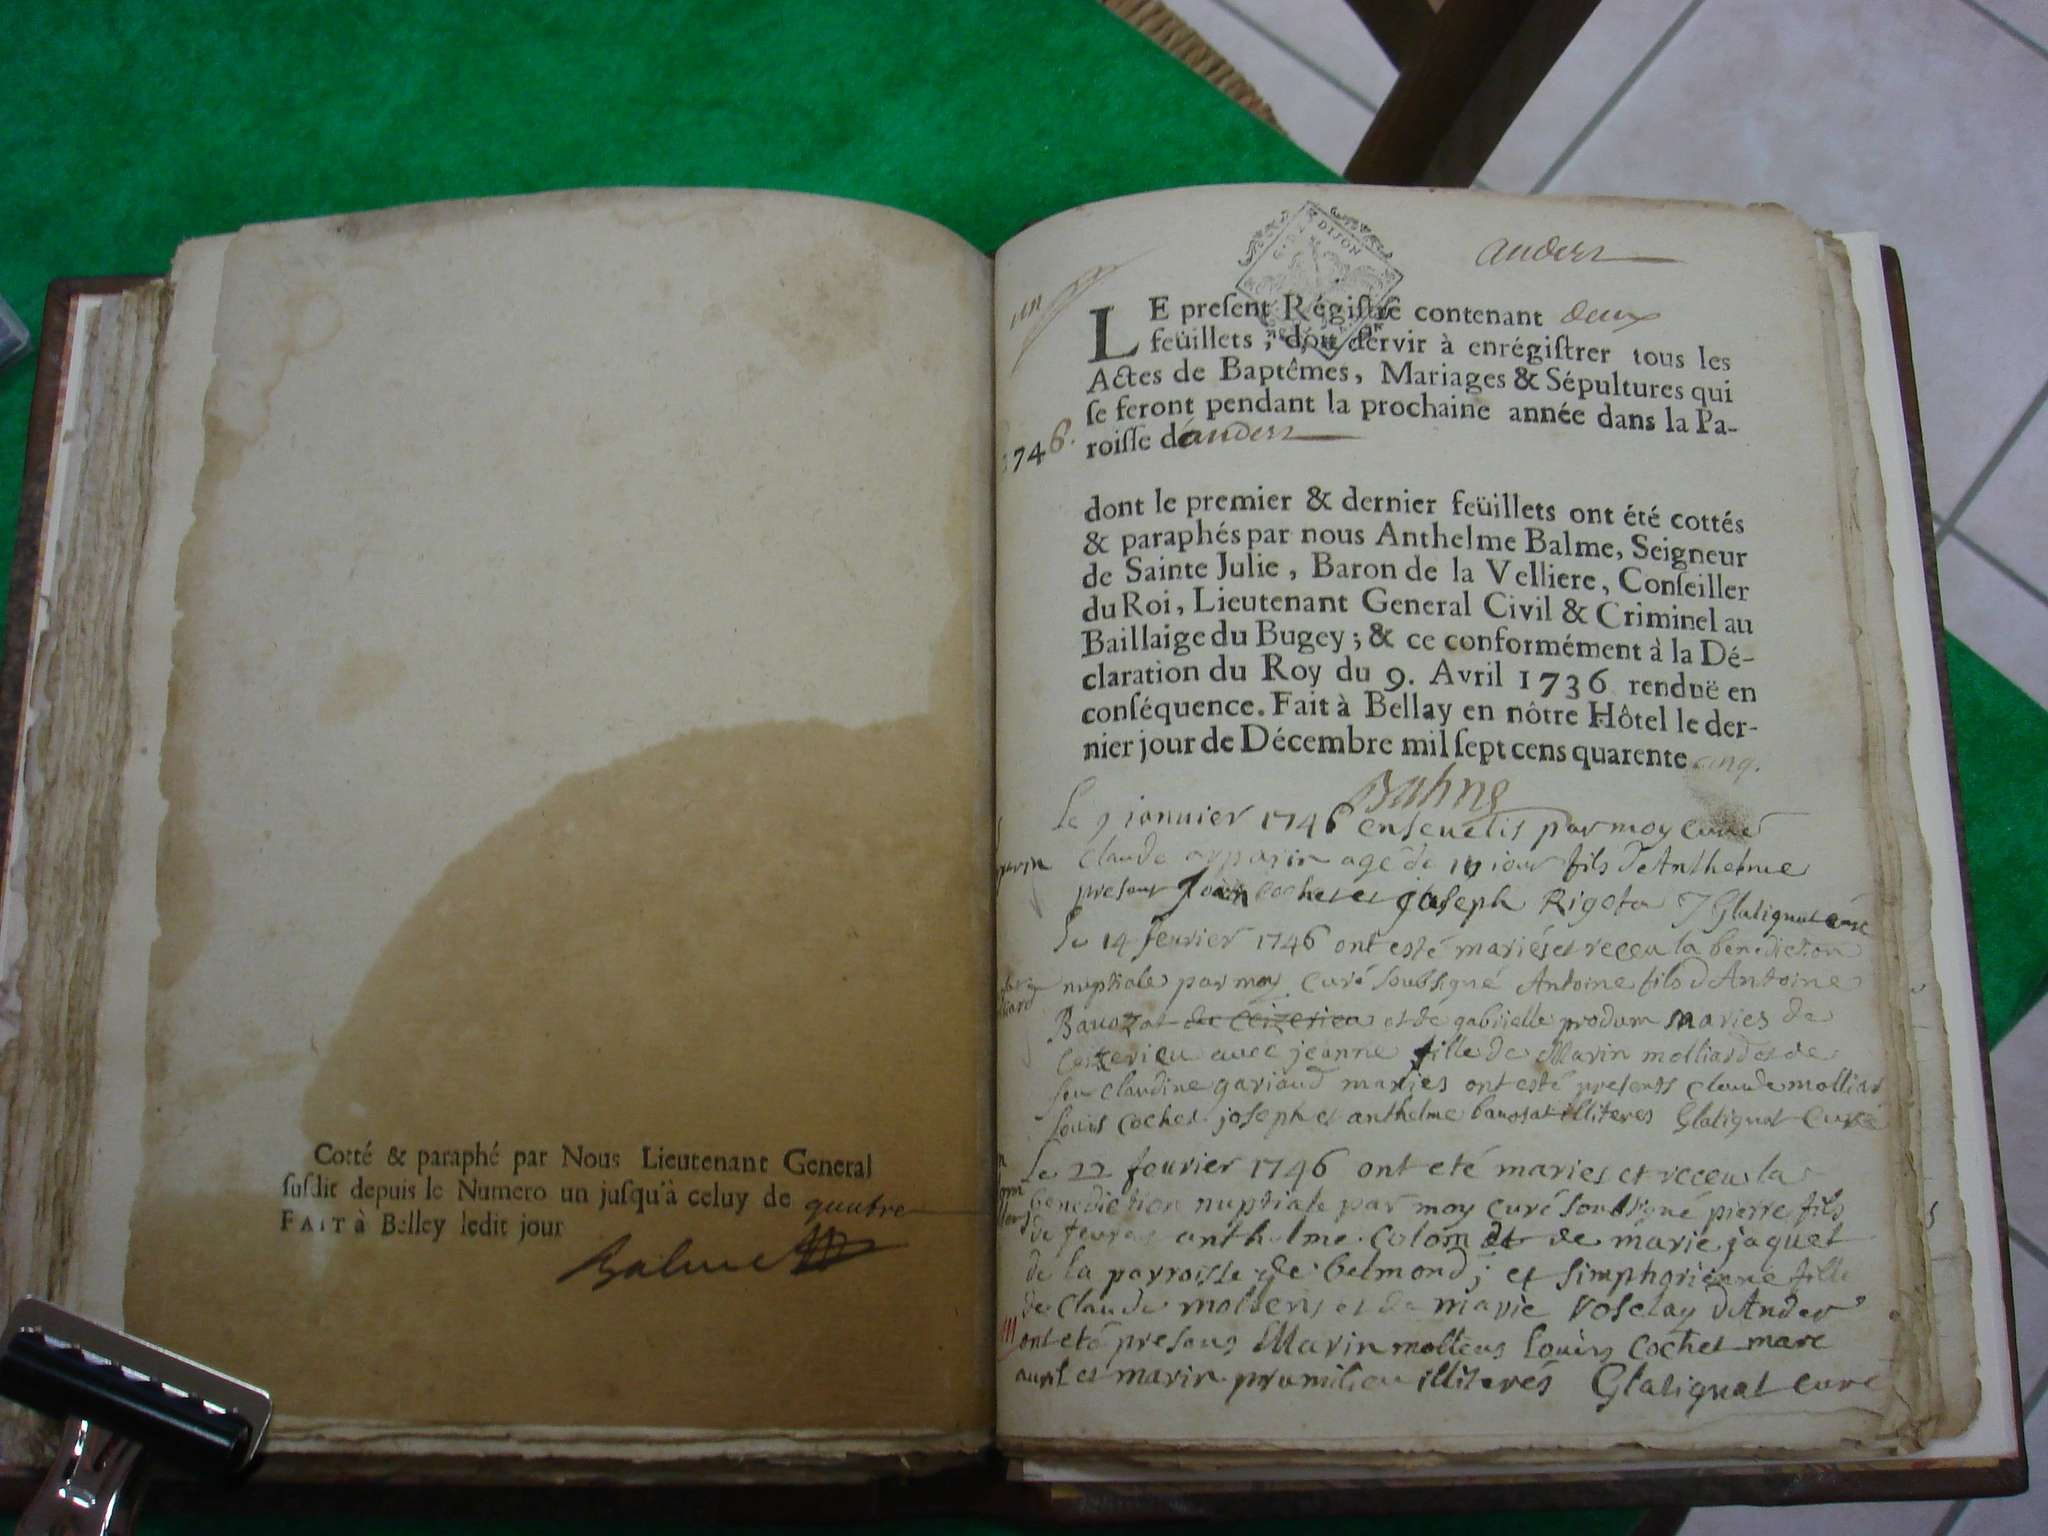 Cotté & paraphé par Nous Lieutenant General
susdit depuis le Numero un jusqu'à celuy de quatre
FAIT à Belley ledit jour
Balme
DIJON
andert
un
LE present Régistre contenant deux
feüillets, doit servir à enrégistrer tous les
Actes de Baptêmes, Mariages & Sépultures qui
se feront pendant la prochaine année dans la Pa-
roisse d'andert
1746.
dont le premier & dernier feüillets ont été cottés
& paraphés par nous Anthelme Balme, Seigneur
de Sainte Julie, Baron de la Velliere, Conseiller
du Roi, Lieutenant General Civil & Criminel au
Baillaige du Bugey; & ce conformément à la Dé-
claration du Roy du 9. Avril 1736 renduë en
conséquence. Fait à Bellay en nôtre Hôtel le der-
nier jour de Décembre mil sept cens quarente cinq.
Balme
Le 9 ianuier 1746 enseuelis par moy curé
claude age de jour fils de Anthelme
presens cochet et joseph Rigeta Glatignat curé
Le 14 feurier 1746 ont esté mariés et receu la benediction
nuptiale par moy curé soubsigné Antoine fils d'Antoine
Bauozat de ceizerieu et de gabrielle prodam maries de
ceizerieu auec jeanne fille de Marin molliard et de
feu claudine gariaud maries ont esté presents claude molliar
louis cochet joseph et anthelme bauosat illiteres Glatignat Curé
Le 22 feurier 1746 ont eté maries et receu la
benediction nuptiale par moy curé soubsigné pierre fils
de anthelme colom et de marie jaquet
de la parroisse de belmond; et simphorienne fille
de claude moltens et de marie roselay d'Ander
ont eté presens Marin moltens louis cochet marc
et marin prumilieu illiterés Glatignat curé